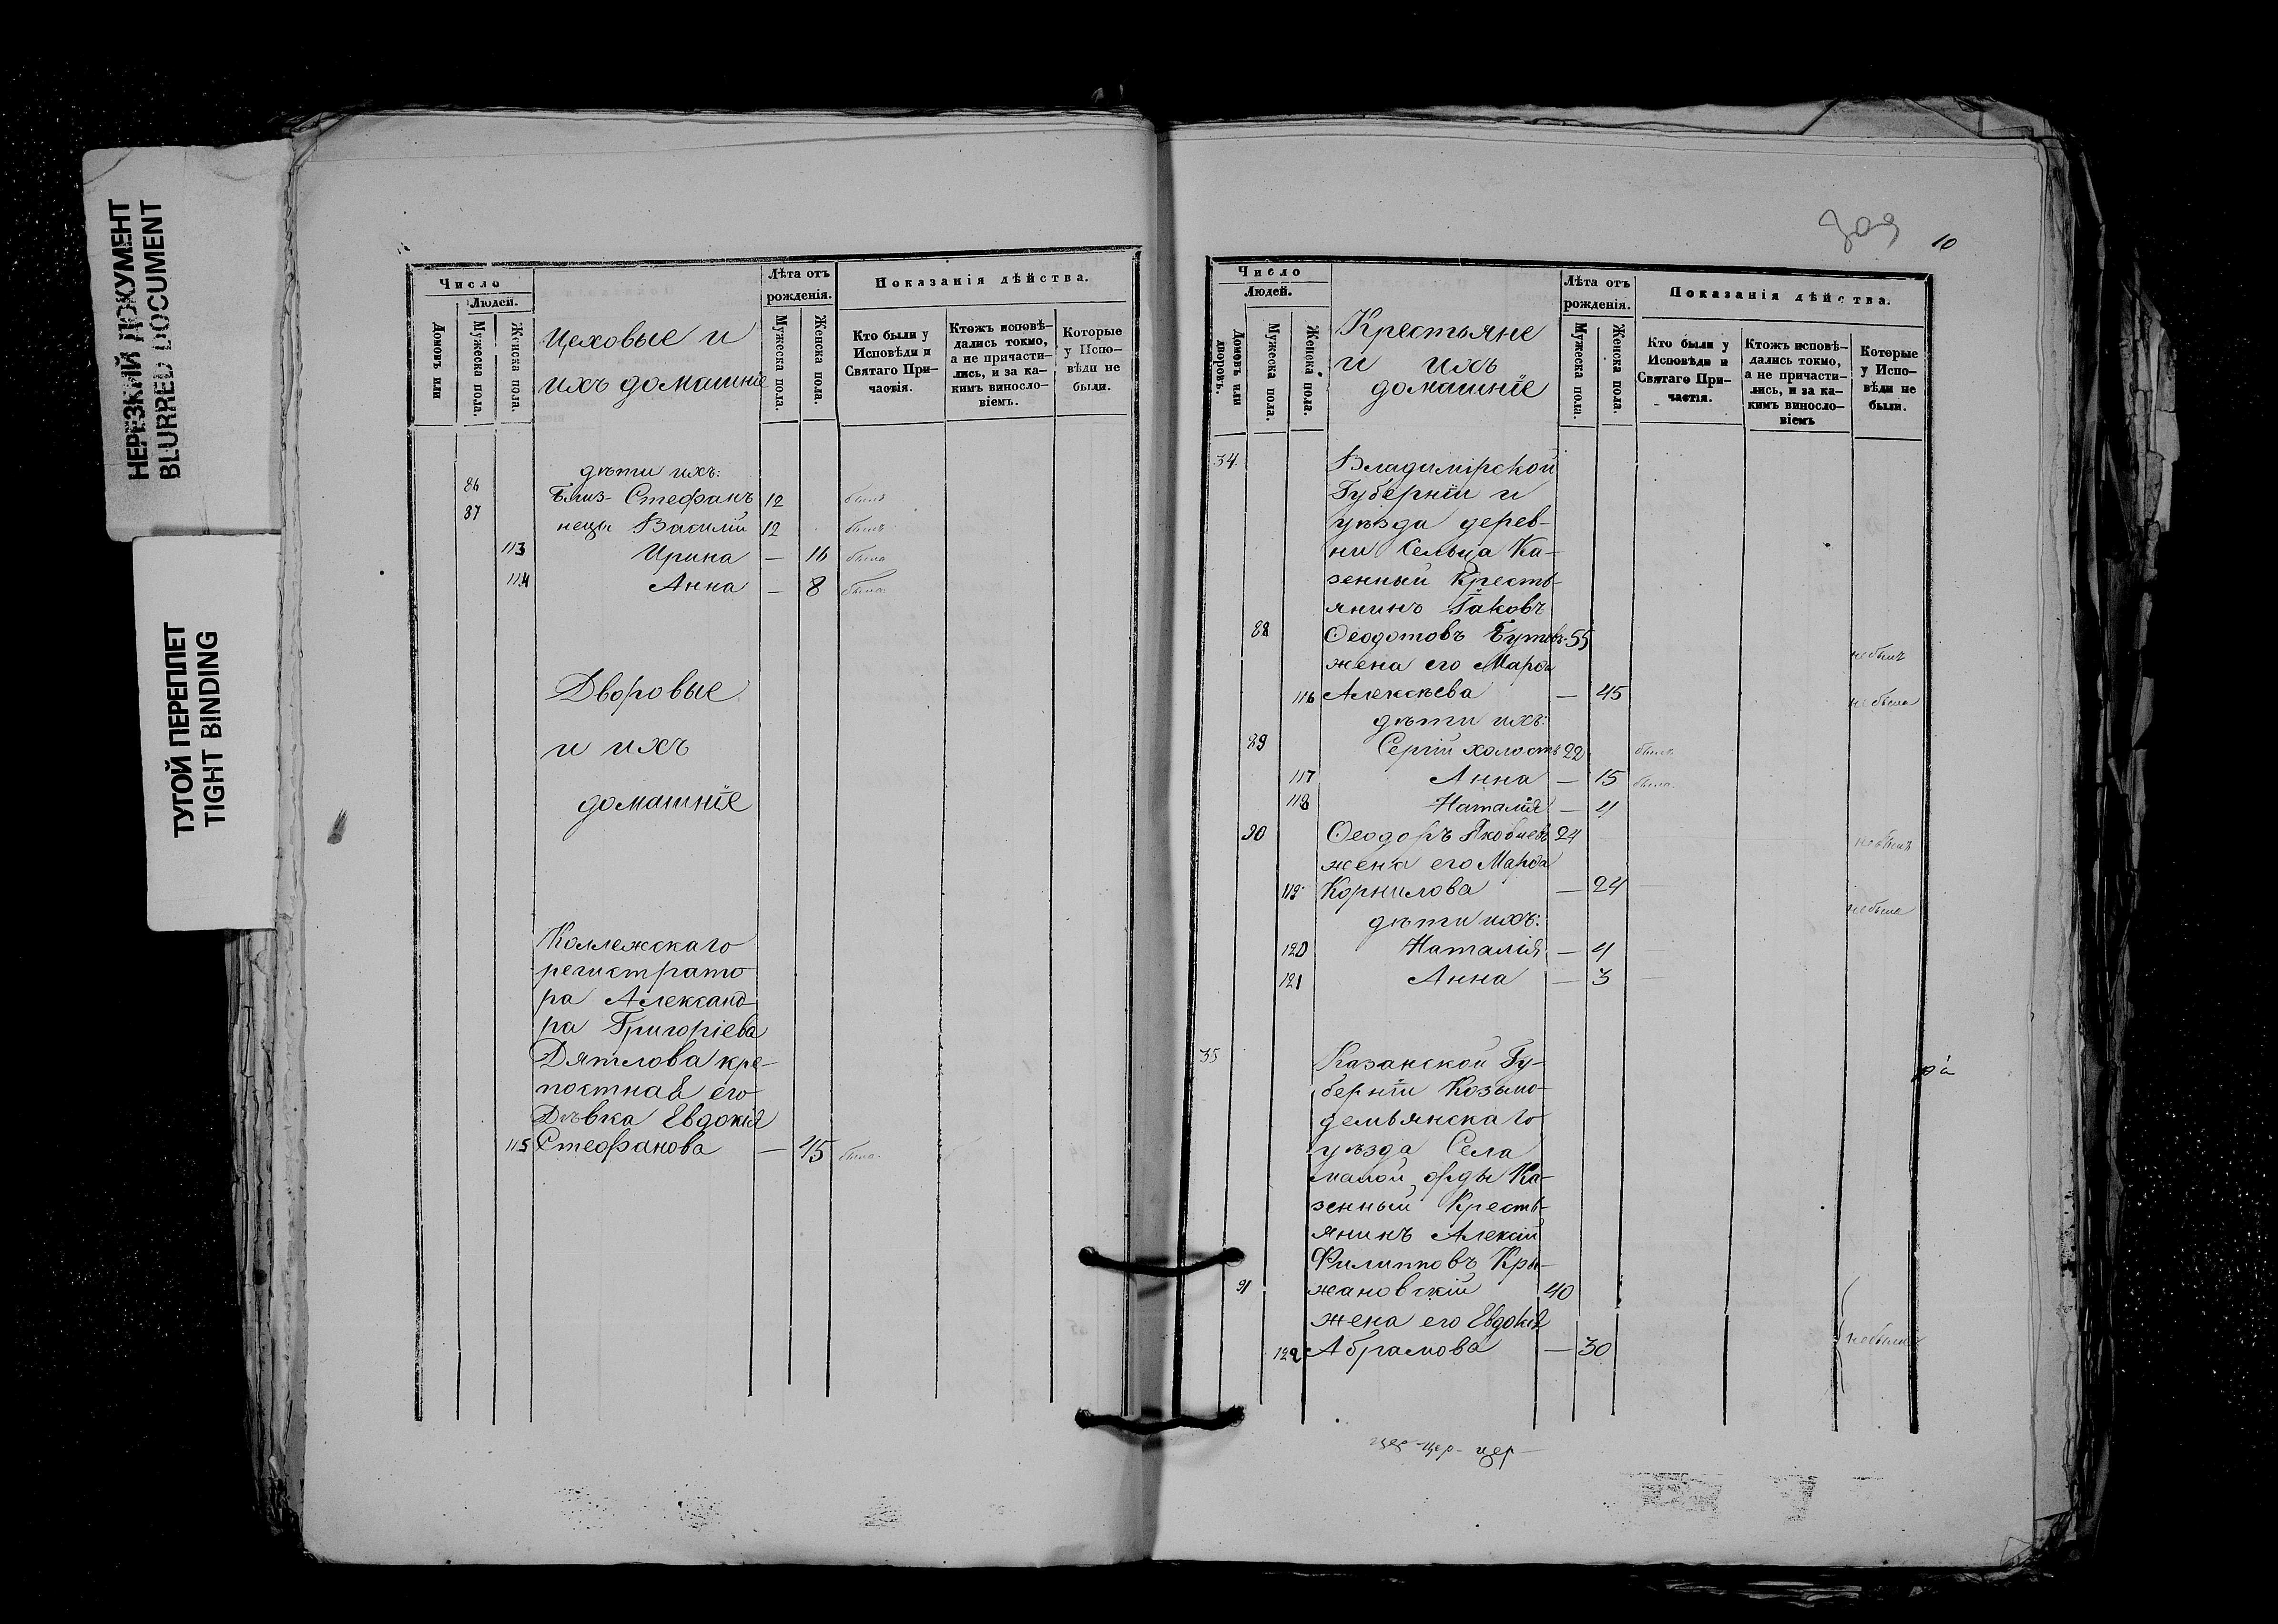 НЕРЕЗКИЙ ДОКУМЕНТ
BLURRED DOCUMENT
ТУГОЙ ПЕРЕПЛЕТ
TIGHT BINDING
Число
Людей.
Домовъ или
Мужеска пола.
Женска пола.
Цеховые и
ихъ домашніе
Лѣта отъ
рожденія.
Мужеска пола.
Женска пола.
Показанія дѣйства.
Кто были у
Исповѣди и
Святаго При-
частія.
Ктожъ исповѣ-
дались токмо,
а не причасти-
лись, и за ка-
кимъ виносло-
віемъ.
Которые
у Испо-
вѣди не
были.
дѣти ихъ:
86 Близ- Стефанъ 12 былъ
87 нецы Василій 12 былъ
113 Ирина — 16 была
114 Анна — 8 была
Дворовые
и ихъ
домашніе
Коллежскаго
регистрато
ра Александ
ра Григоріева
Дятлова кре-
постная его
Дѣвка Евдокія
115 Стефанова — 45 была
10
Число
Людей.
Домовъ или
дворовъ.
Мужеска пола.
Женска пола.
Крестьяне
и ихъ
домашніе
Лѣта отъ
рожденія.
Мужеска пола.
Женска пола.
Показанія дѣйства.
Кто были у
Исповѣди и
Святаго При-
частія.
Ктожъ исповѣ-
дались токмо,
а не причасти-
лись, и за ка-
кимъ виносло-
віемъ
Которые
у Испо-
вѣди не
были.
34. Владимірской
Губерніи и
уѣзда дерев-
ни Сельца Ка-
зенный Кресть-
янинъ Іаковъ
88 Ѳеодотовъ Бутовъ 55 небылъ
жена его Марѳа
116 Алексѣева — 45 небыла
дѣти ихъ:
89 Сергій холостъ 22 былъ
117 Анна — 15 была
118 Наталія — 4
90 Ѳеодоръ Яковлевъ 24 небылъ
жена его Марѳа
119 Корнилова — 24 небыла
дѣти ихъ:
120 Наталія — 4
121 Анна — 3
35 Казанской Гу-
берніи Козьмо-
демьянскаго
уѣзда Села
малой орды Ка-
зенный Кресть-
янинъ Алексій
Филипповъ Кры-
91 жановскій 40
жена его Евдокія
122 Абрамова — 30 небыли